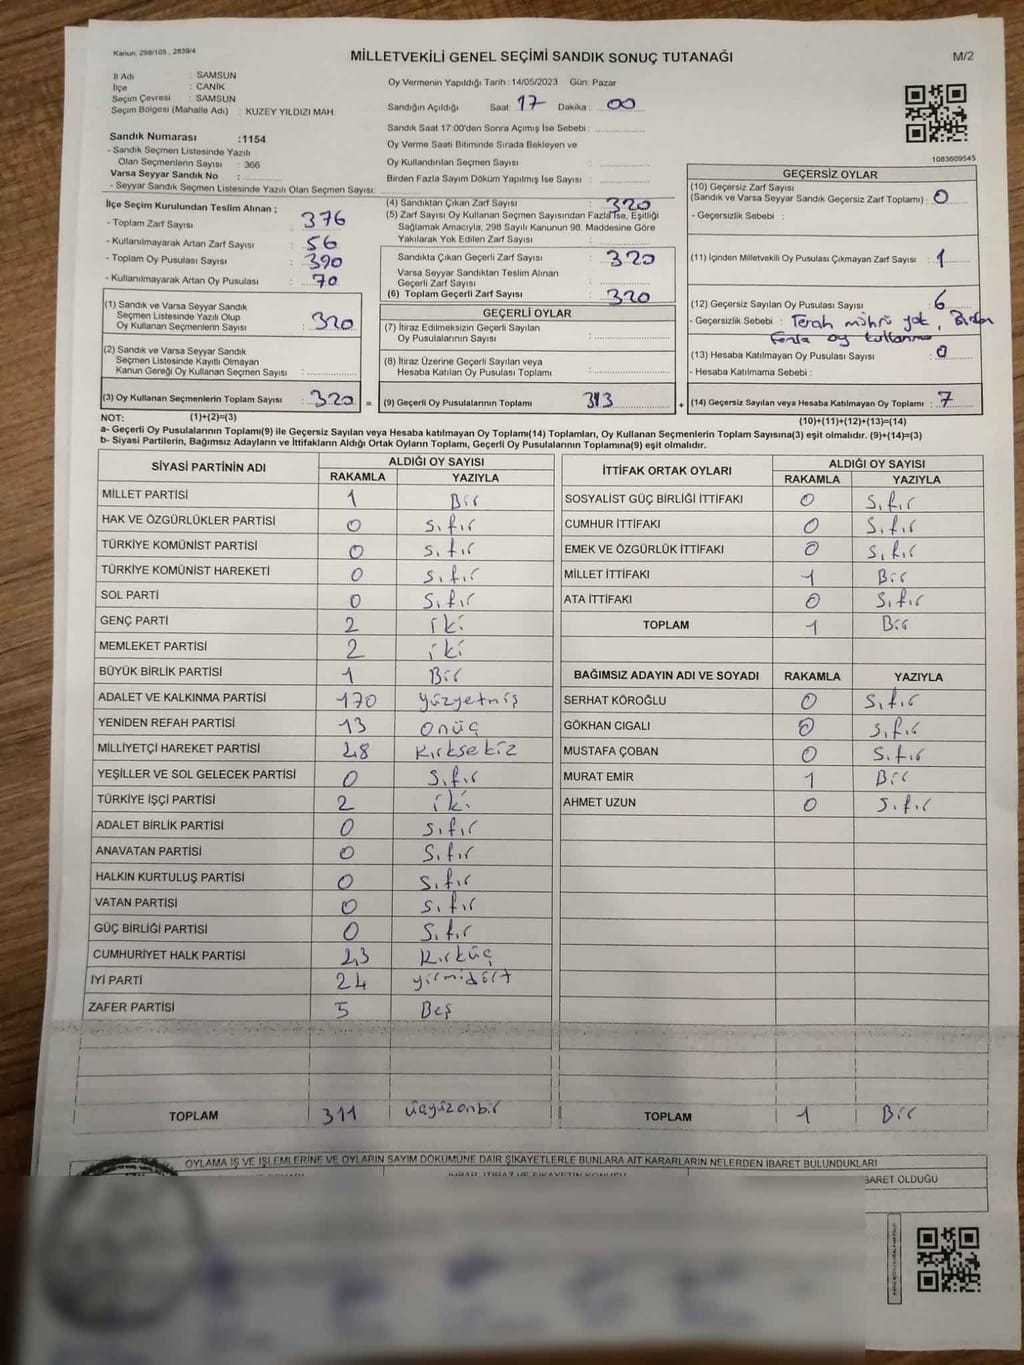 Kanun: 298/105 , 2839/4
MİLLETVEKİLİ GENEL SEÇİMİ SANDIK SONUÇ TUTANAĞI
M/2
İl Adı : SAMSUN
İlçe : CANİK
Seçim Çevresi : SAMSUN
Seçim Bölgesi (Mahalle Adı) : KUZEY YILDIZI MAH.
Sandık Numarası :1154
- Sandık Seçmen Listesinde Yazılı
Olan Seçmenlerin Sayısı : 366
Varsa Seyyar Sandık No :
- Seyyar Sandık Seçmen Listesinde Yazılı Olan Seçmen Sayısı:
Oy Vermenin Yapıldığı Tarih :14/05/2023 Gün: Pazar
Sandığın Açıldığı Saat: 17 Dakika : 00
Sandık Saat 17:00'den Sonra Açımış İse Sebebi :
Oy Verme Saati Bitiminde Sırada Bekleyen ve
Oy Kullandırılan Seçmen Sayısı :
Birden Fazla Sayım Döküm Yapılmış İse Sayısı :
1083609545
İlçe Seçim Kurulundan Teslim Alınan ;
- Toplam Zarf Sayısı : 376
- Kullanılmayarak Artan Zarf Sayısı : 56
- Toplam Oy Pusulası Sayısı : 390
- Kullanılmayarak Artan Oy Pusulası : 70
(1) Sandık ve Varsa Seyyar Sandık
Seçmen Listesinde Yazılı Olup
Oy Kullanan Seçmenlerin Sayısı : 320
(2) Sandık ve Varsa Seyyar Sandık
Seçmen Listesinde Kayıtlı Olmayan
Kanun Gereği Oy Kullanan Seçmen Sayısı :
(3) Oy Kullanan Seçmenlerin Toplam Sayısı : 320 =
(4) Sandıktan Çıkan Zarf Sayısı : 320
(5) Zarf Sayısı Oy Kullanan Seçmen Sayısından Fazla İse, Eşitliği
Sağlamak Amacıyla; 298 Sayılı Kanunun 98. Maddesine Göre
Yakılarak Yok Edilen Zarf Sayısı :
Sandıkta Çıkan Geçerli Zarf Sayısı : 320
Varsa Seyyar Sandıktan Teslim Alınan
Geçerli Zarf Sayısı :
(6) Toplam Geçerli Zarf Sayısı : 320
GEÇERLİ OYLAR
(7) İtiraz Edilmeksizin Geçerli Sayılan
Oy Pusulalarının Sayısı :
(8) İtiraz Üzerine Geçerli Sayılan veya
Hesaba Katılan Oy Pusulası Toplamı :
(9) Geçerli Oy Pusulalarının Toplamı : 313 +
GEÇERSİZ OYLAR
(10) Geçersiz Zarf Sayısı
(Sandık ve Varsa Seyyar Sandık Geçersiz Zarf Toplamı) : 0
- Geçersizlik Sebebi :
(11) İçinden Milletvekili Oy Pusulası Çıkmayan Zarf Sayısı : 1
(12) Geçersiz Sayılan Oy Pusulası Sayısı : 6
- Geçersizlik Sebebi : Terah möhrü yok, Birden
fazla oy kullanma
(13) Hesaba Katılmayan Oy Pusulası Sayısı : 0
- Hesaba Katılmama Sebebi :
(14) Geçersiz Sayılan veya Hesaba Katılmayan Oy Toplamı : 7
NOT: (1)+(2)=(3)
(10)+(11)+(12)+(13)=(14)
a- Geçerli Oy Pusulalarının Toplamı(9) ile Geçersiz Sayılan veya Hesaba katılmayan Oy Toplamı(14) Toplamları, Oy Kullanan Seçmenlerin Toplam Sayısına(3) eşit olmalıdır. (9)+(14)=(3)
b- Siyasi Partilerin, Bağımsız Adayların ve İttifakların Aldığı Ortak Oyların Toplamı, Geçerli Oy Pusulalarının Toplamına(9) eşit olmalıdır.
SİYASİ PARTİNİN ADI ALDIĞI OY SAYISI
RAKAMLA YAZIYLA
MİLLET PARTİSİ 1 Bir
HAK VE ÖZGÜRLÜKLER PARTİSİ 0 Sıfır
TÜRKİYE KOMÜNİST PARTİSİ 0 Sıfır
TÜRKİYE KOMÜNİST HAREKETİ 0 Sıfır
SOL PARTİ 0 Sıfır
GENÇ PARTİ 2 iki
MEMLEKET PARTİSİ 2 iki
BÜYÜK BİRLİK PARTİSİ 1 Bir
ADALET VE KALKINMA PARTİSİ 170 yüzyetmiş
YENİDEN REFAH PARTİSİ 13 onüç
MİLLİYETÇİ HAREKET PARTİSİ 48 Kırksekiz
YEŞİLLER VE SOL GELECEK PARTİSİ 0 Sıfır
TÜRKİYE İŞÇİ PARTİSİ 2 iki
ADALET BİRLİK PARTİSİ 0 Sıfır
ANAVATAN PARTİSİ 0 Sıfır
HALKIN KURTULUŞ PARTİSİ 0 Sıfır
VATAN PARTİSİ 0 Sıfır
GÜÇ BİRLİĞİ PARTİSİ 0 Sıfır
CUMHURİYET HALK PARTİSİ 43 Kırküç
İYİ PARTİ 24 yirmidört
ZAFER PARTİSİ 5 Beş
TOPLAM 311 üçyüzonbir
İTTİFAK ORTAK OYLARI ALDIĞI OY SAYISI
RAKAMLA YAZIYLA
SOSYALİST GÜÇ BİRLİĞİ İTTİFAKI 0 Sıfır
CUMHUR İTTİFAKI 0 Sıfır
EMEK VE ÖZGÜRLÜK İTTİFAKI 0 Sıfır
MİLLET İTTİFAKI 1 Bir
ATA İTTİFAKI 0 Sıfır
TOPLAM 1 Bir
BAĞIMSIZ ADAYIN ADI VE SOYADI RAKAMLA YAZIYLA
SERHAT KÖROĞLU 0 Sıfır
GÖKHAN CIGALI 0 Sıfır
MUSTAFA ÇOBAN 0 Sıfır
MURAT EMİR 1 Bir
AHMET UZUN 0 Sıfır
TOPLAM 1 Bir
OYLAMA İŞ VE İŞLEMLERİNE VE OYLARIN SAYIM DÖKÜMÜNE DAİR ŞİKAYETLERLE BUNLARA AİT KARARLARIN NELERDEN İBARET BULUNDUKLARI
BARET OLDUĞU